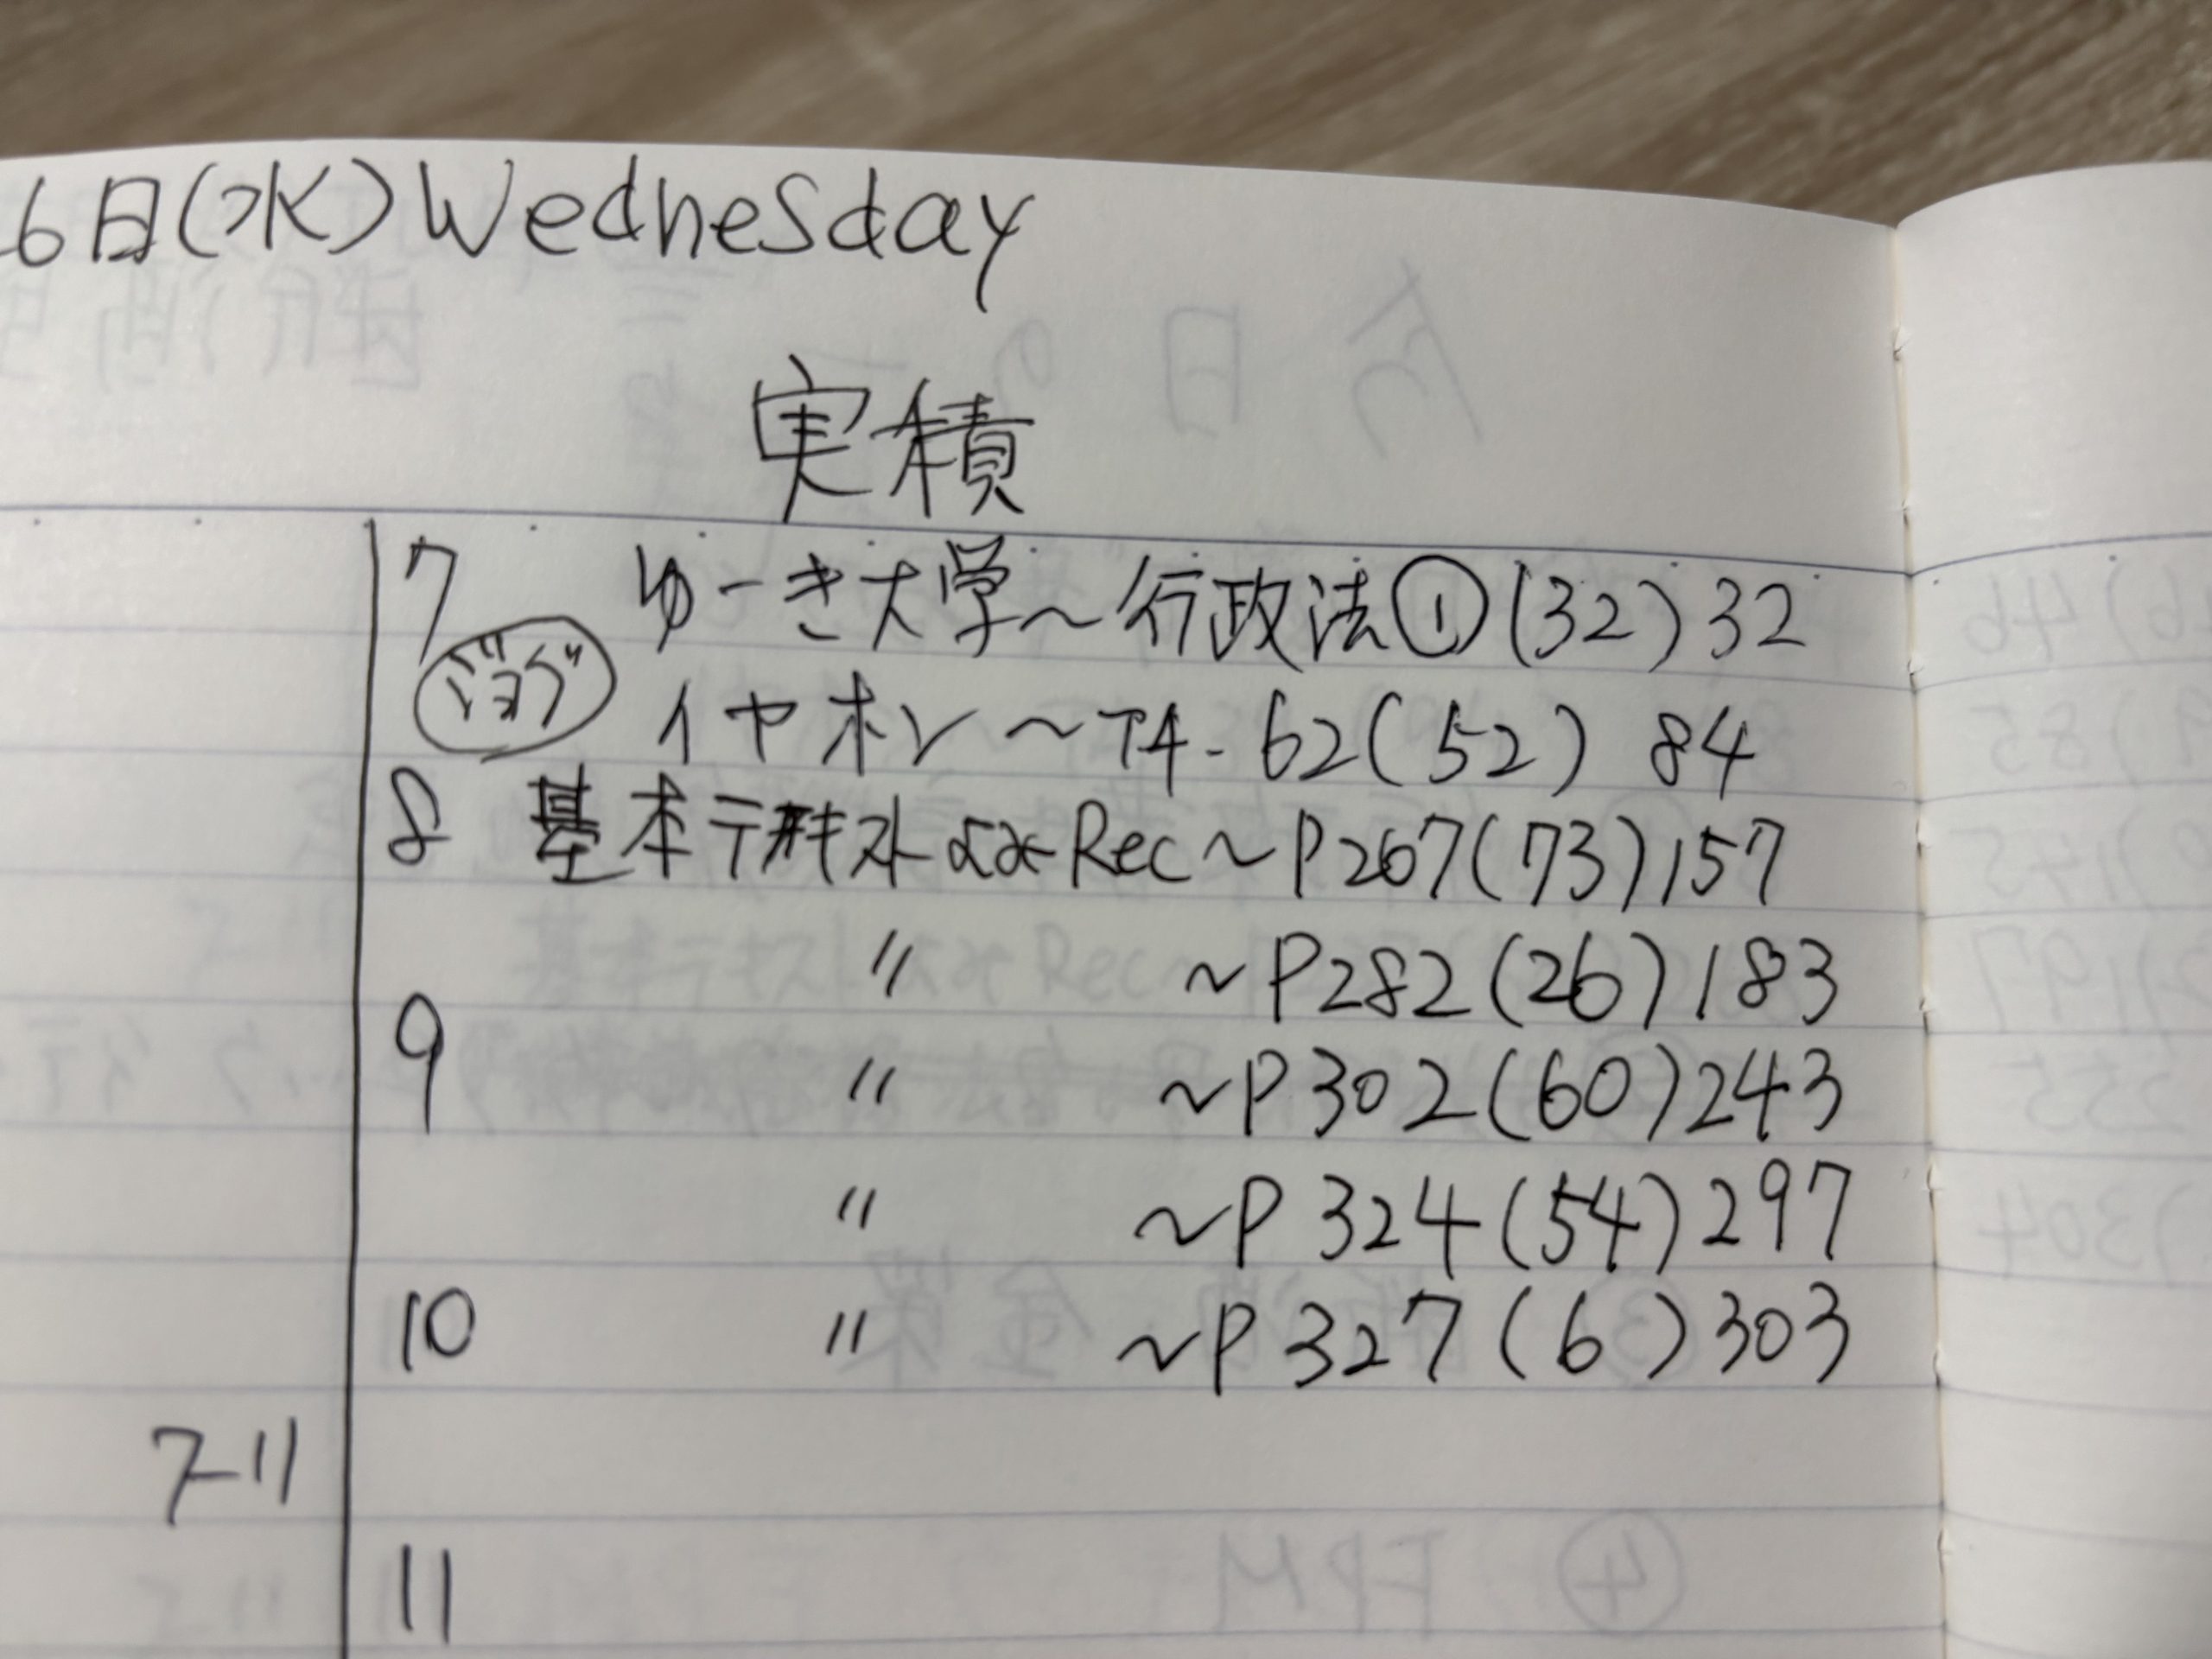 6日(水)Wednesday
実積
7 ゆーき大学～行政法①(32)32
ジョグ
イヤホン～T4-62(52) 84
8 基本テキスト Rec～P267(73)157
〃 ～P282(26)183
9 〃 ～P302(60)243
〃 ～P324(54)297
10 〃 ～P327(6)303
7-11
11